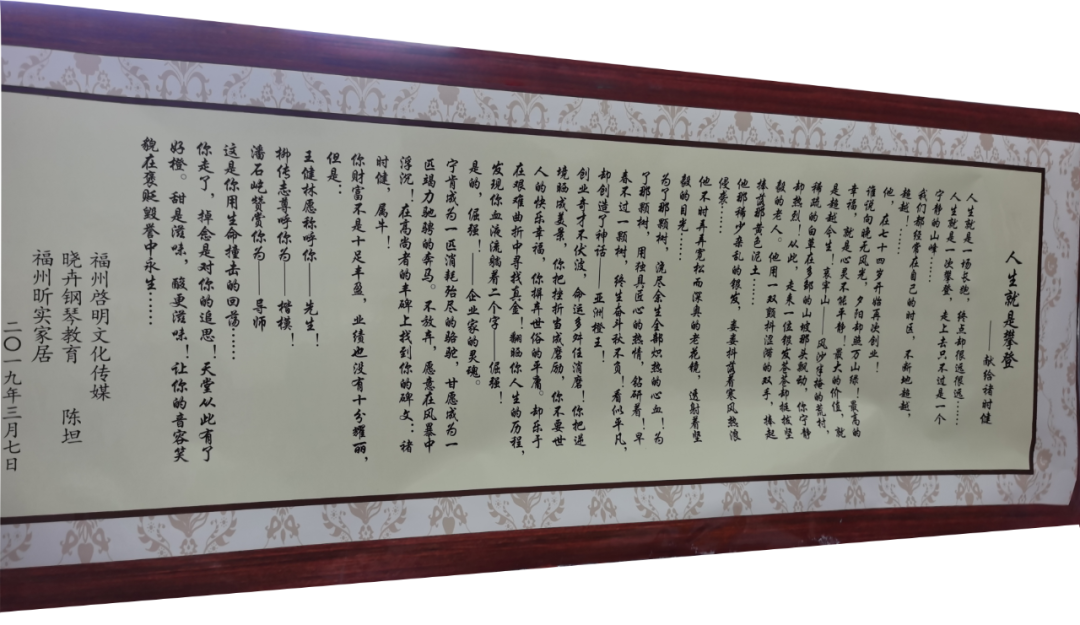 人生就是攀登
——献给褚时健
人生就是一场长跑，终点却很远很远……
人生就是一次攀登，走上去只不过是一个
宁静的山峰……
我们都经常在自己的时区，不断地超越，
超越！……
他，在七十四岁开始再次创业！
谁说向晚无风光，夕阳却照万山绿！最高的
幸福，就是心灵不能平静！最大的价值，就
是超越今生！哀牢山——风沙半掩的荒村，
稀疏的白草在多皱的山坡那头飘动，你宁静
却热烈！从此，走来一位银发苍苍却挺拔坚
毅的老人。他用一双颤抖湿漉的双手，捧起
揉搓那黄色泥土……
他那稀少杂乱的银发，萎萎抖擞着寒风热浪
侵袭……
他不时弄弄宽松而深奥的老花镜，透射着坚
毅的目光……
为了那颗树，流尽余生全部炽热的心血！为
了那颗树，用独具匠心的热情，钻研着！早
春不过一颗树，终生奋斗秋不负！看似平凡，
却创造了神话——亚洲橙王！
创业奇才不伏波，命运多舛任消磨！你把逆
境畅成美景，你把挫折当成磨励，你不要世
人的快乐幸福，你摒弃世俗的平庸。却乐于
在艰难曲折中寻找真金！翻肠你人生的历程，
发现你血液流淌着二个字——倔强！
是的，倔强！——企业家的灵魂。
宁肯成为一匹消耗殆尽的骆驼，甘愿成为一
匹竭力驰骋的奔马。不放弃，愿意在风暴中
浮沉！在高尚者的丰碑上找到你的碑文：诸
时健，属牛！
你财富不是十足丰盈，业绩也没有十分耀丽，
但是：
王健林愿称呼你——先生！
柳传志尊呼你为——楷模！
潘石屹赞赏你为——导师
这是你用生命撞击的回荡……
你走了，掉念是对你的追思！天堂从此有了
好橙。甜是滋味，酸更滋味！让你的音容笑
貌在褒贬毁誉中永生……
福州啓明文化传媒
晓卉钢琴教育 陈坦
福州昕实家居
二〇一九年三月七日